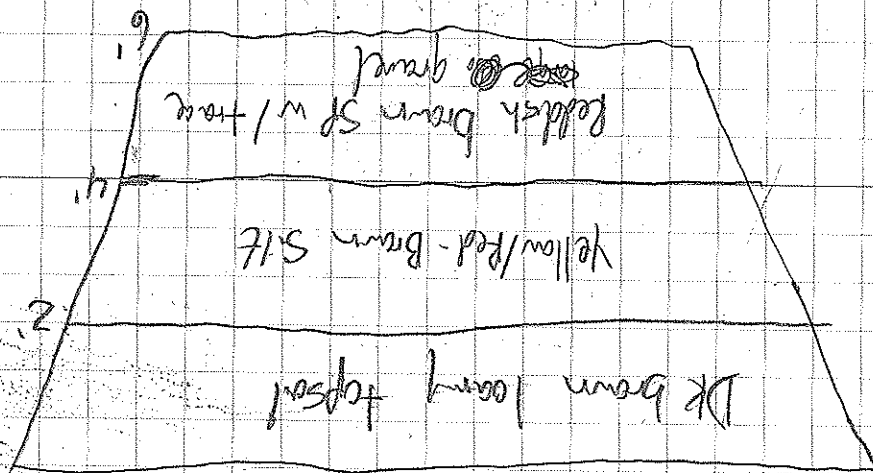 Dk brown loamy topsoil
2'
Yellow/Red-Brown Silt
4'
Reddish brown SP w/ trace
gravel
6'